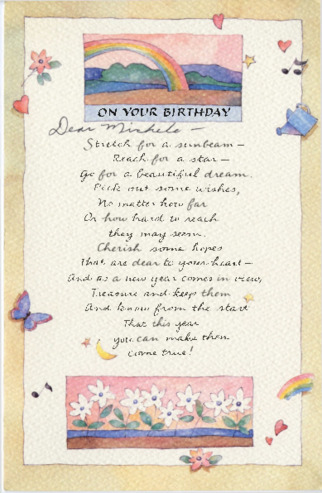 ON YOUR BIRTHDAY
Dear Michele —
Stretch for a sunbeam —
Reach for a star —
Go for a beautiful dream.
Pick out some wishes,
No matter how far
Or how hard to reach
they may seem.
Cherish some hopes
That are dear to your heart —
And as a new year comes in view,
Treasure and keep them
And know from the start
That this year
you can make them
come true!